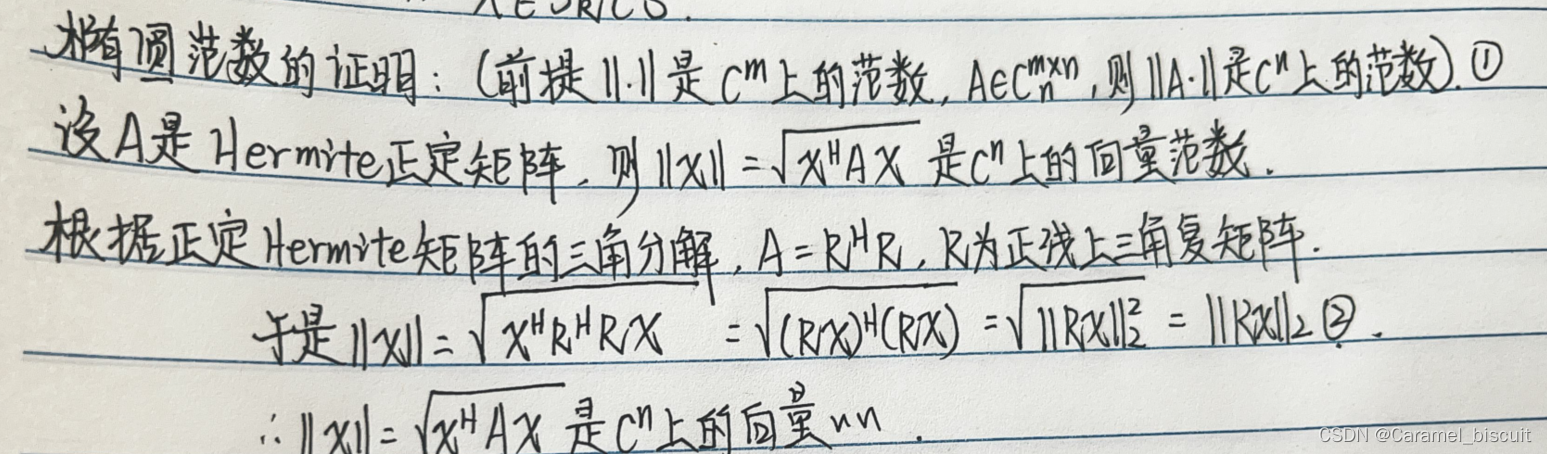 X∈Sn/Co.
椭圆范数的证明：(前提||·||是C^m上的范数, A∈C_n^{m×n}, 则||A·||是C^n上的范数). ①
设A是Hermite正定矩阵，则||X|| = √(X^H A X) 是C^n上的向量范数.
根据正定Hermite矩阵的三角分解, A = R^H R, R为正线上三角复矩阵.
于是||X|| = √(X^H R^H R X) = √((RX)^H (RX)) = √(||RX||_2^2) = ||RX||_2 ②.
∴ ||X|| = √(X^H A X) 是C^n上的向量nn.
CSDN @Caramel_biscuit